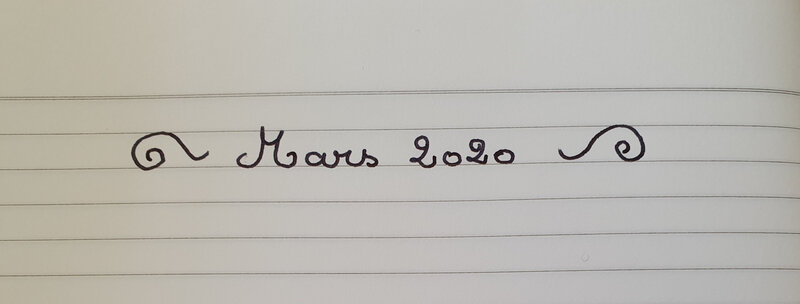 Mars 2020